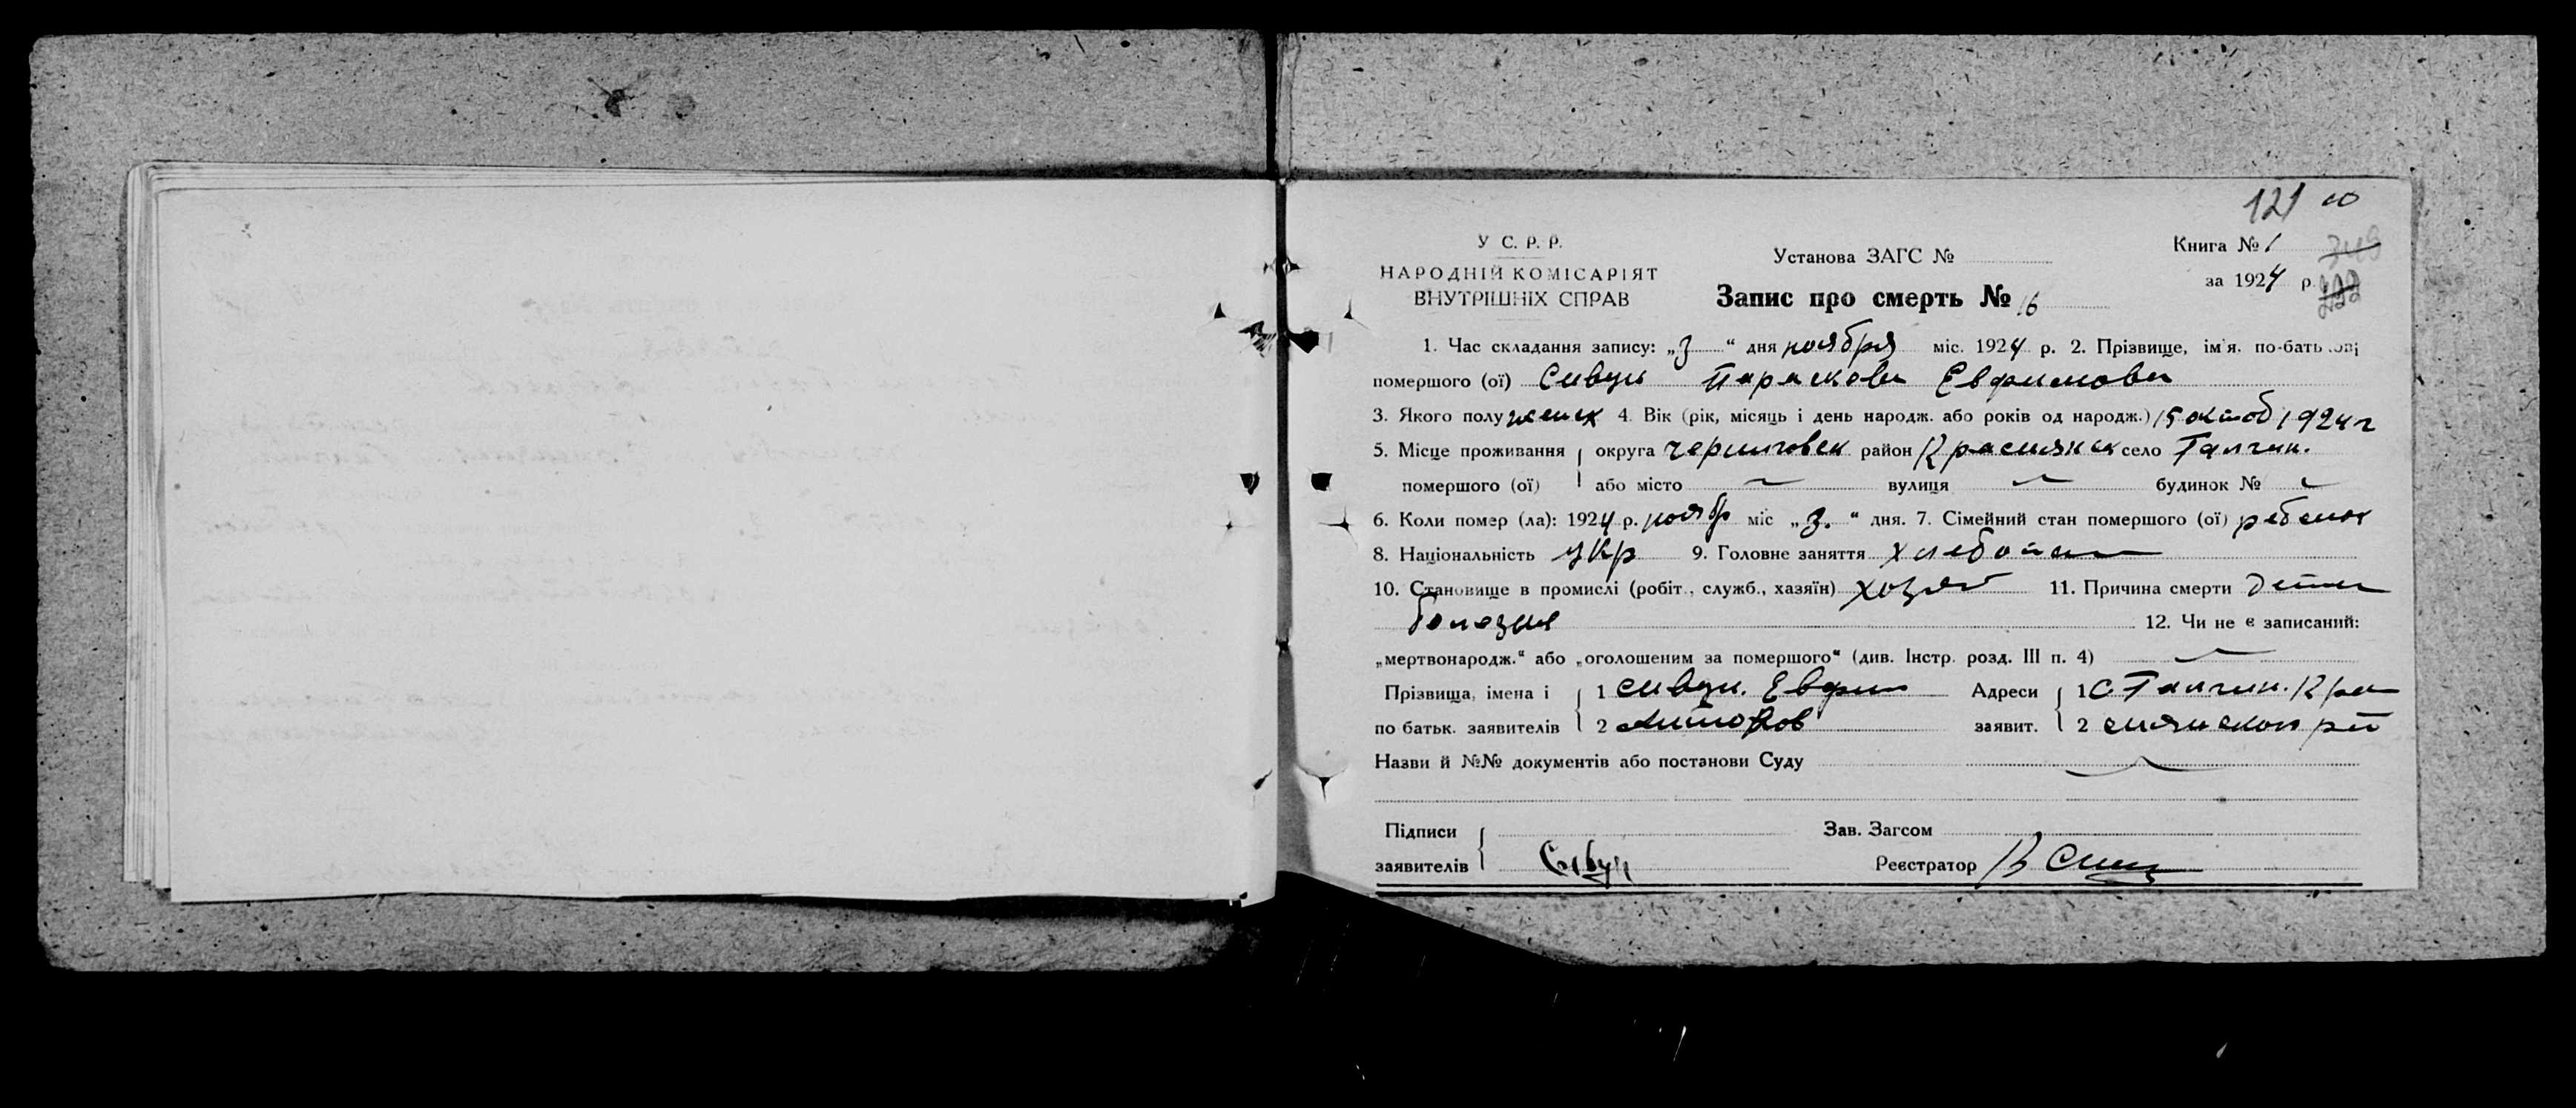 121
У С. Р. Р.
НАРОДНІЙ КОМІСАРІЯТ
ВНУТРІШНІХ СПРАВ
Установа ЗАГС №
Запис про смерть № 16
Книга № 1
за 1924 р.
1. Час складання запису: „3“ дня ноября міс. 1924 р. 2. Прізвище, ім'я, по-батькові
помершого (ої) Сивун Параскова Евфимова
3. Якого полу женск 4. Вік (рік, місяць і день народж. або років од народж.) 15 октоб 1924 г
5. Місце проживання округа Черниговск район село
помершого (ої) або місто — вулиця — будинок № —
6. Коли помер (ла): 1924 р. ноябр міс „3.“ дня. 7. Сімейний стан помершого (ої) ребенок
8. Національність укр 9. Головне заняття хлебопаш
10. Становище в промислі (робіт., служб., хазяїн) хозяв 11. Причина смерти детск
болезня
12. Чи не є записаний:
„мертвонародж.“ або „оголошеним за помершого“ (див. Інстр. розд. III п. 4) —
Прізвища, імена і 1 Сивун. Евфим Адреси 1 С
по батьк. заявителів 2 заявит. 2
Назви й №№ документів або постанови Суду —
Підписи Зав. Загсом
заявителів Сивун Реєстратор